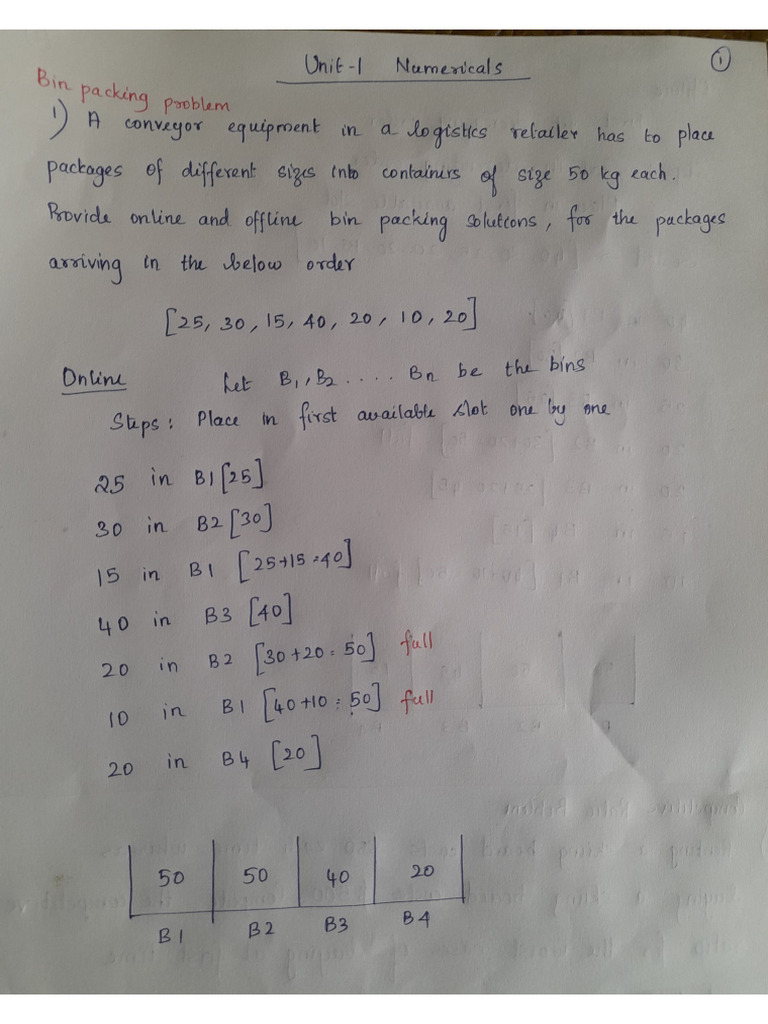 Unit-1 Numericals
1
Bin packing problem
1) A conveyor equipment in a logistics retailer has to place
packages of different sizes into containers of size 50 kg each.
Provide online and offline bin packing solutions, for the packages
arriving in the below order
[25, 30, 15, 40, 20, 10, 20]
Online Let B1, B2 .... Bn be the bins
Steps: Place in first available slot one by one
25 in B1 [25]
30 in B2 [30]
15 in B1 [25+15=40]
40 in B3 [40]
20 in B2 [30+20=50] full
10 in B1 [40+10=50] full
20 in B4 [20]
50 50 40 20
B1 B2 B3 B4